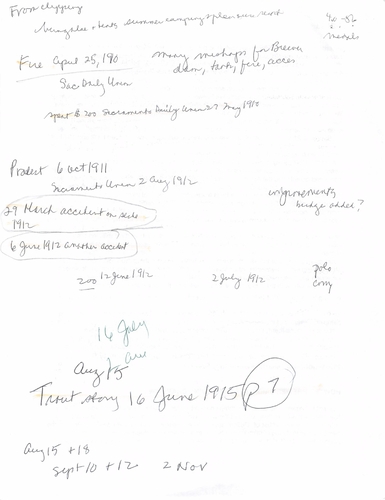 From clipping
bungalow + tents summer camping place
Fire April 25, 190
many mishaps for Breuner
dam, tank, fire, acces
Sac Daily Union
spent $200 Sacramento Daily Union 27 May 1910
Protect 6 Oct 1911
Sacramento Union 2 Aug 1912
improvements
bridge added?
29 March accident on
1912
6 June 1912 another accident
200 12 June 1912
2 July 1912
polo
16 July
Aug 15
Trout story 16 June 1915 p 7
Aug 15 + 18
Sept 10 + 12 2 Nov